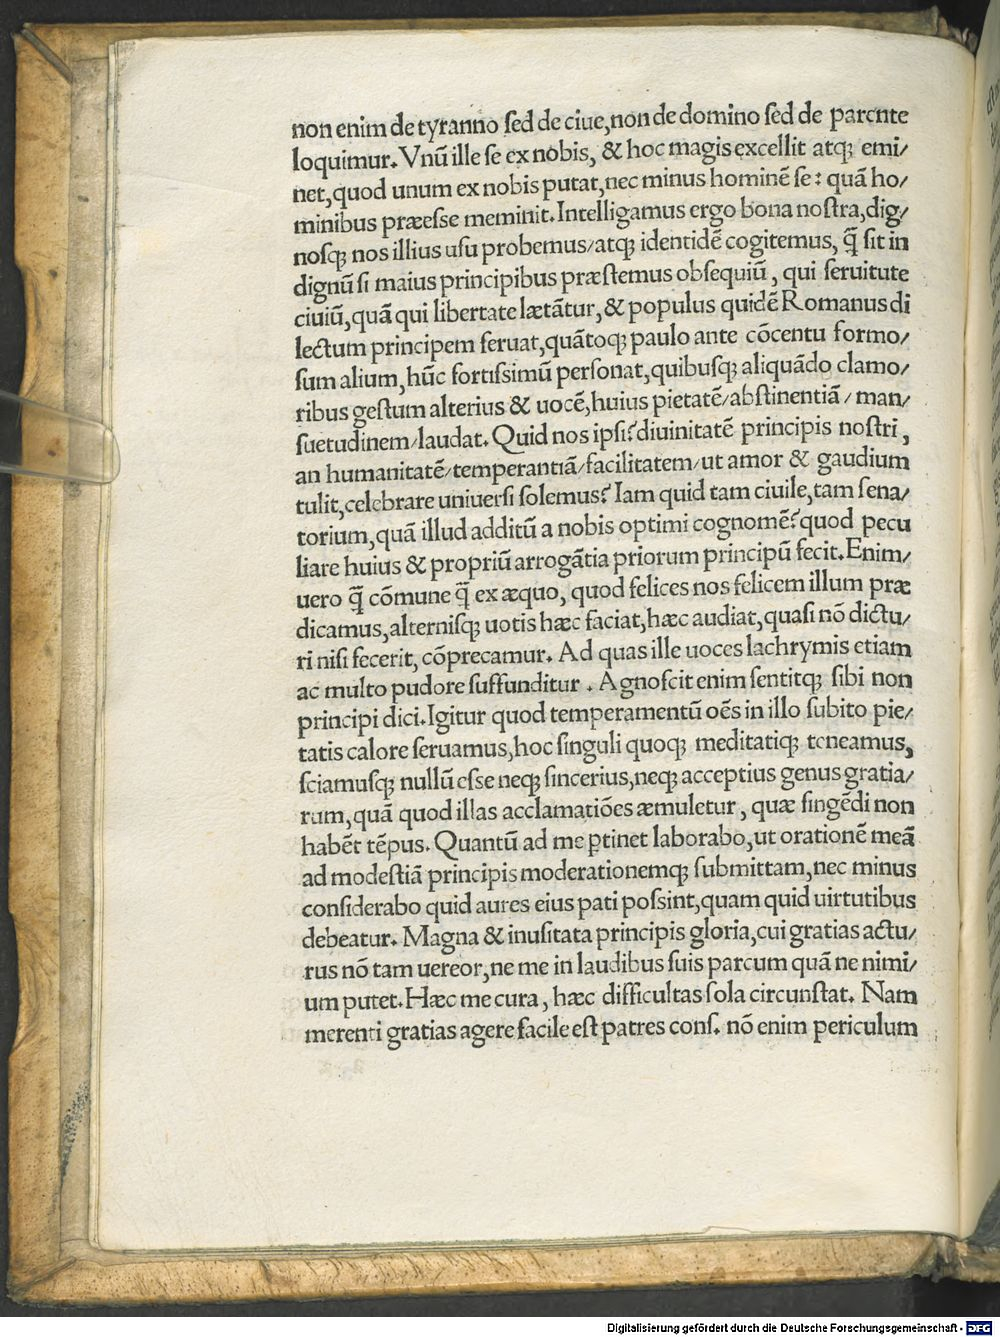 non enim de tyranno ſed de ciue,non de domino ſed de parente
loquimur. Vnũ ille ſe ex nobis, & hoc magis excellit atqꝫ emi/
net,quod unum ex nobis putat,nec minus hominẽ ſe: quã ho/
minibus præeſse meminit. Intelligamus ergo bona noſtra,dig/
noſqꝫ nos illius uſu probemus/atqꝫ identidẽ cogitemus, q̃ ſit in
dignũ ſi maius principibus præſtemus obſequiũ, qui ſeruitute
ciuiũ,quã qui libertate lætãtur,& populus quidẽ Romanus di
lectum principem ſeruat,quãtoqꝫ paulo ante cõcentu formo/
ſum alium,hũc fortiſsimũ perſonat,quibuſqꝫ aliquãdo clamo/
ribus geſtum alterius & uocẽ,huius pietatẽ/abſtinentiã/man/
ſuetudinem/laudat. Quid nos ipſi? diuinitatẽ principis noſtri,
an humanitatẽ/temperantiã/facilitatem/ut amor & gaudium
tulit,celebrare uniuerſi ſolemus? Iam quid tam ciuile,tam ſena/
torium,quã illud additũ a nobis optimi cognomẽ? quod pecu
liare huius & propriũ arrogãtia priorum principũ fecit. Enim/
uero q̃ cõmune q̃ ex æquo, quod felices nos felicem illum præ
dicamus,alterniſqꝫ uotis hæc faciat,hæc audiat,quaſi nõ dictu/
ri niſi fecerit, cõprecamur. Ad quas ille uoces lachrymis etiam
ac multo pudore ſuffunditur. Agnoſcit enim ſentitqꝫ ſibi non
principi dici. Igitur quod temperamentũ oẽs in illo ſubito pie/
tatis calore ſeruamus,hoc ſinguli quoqꝫ meditatiqꝫ teneamus,
ſciamuſqꝫ nullũ eſse neqꝫ ſincerius,neqꝫ acceptius genus gratia/
rum,quã quod illas acclamatiões æmuletur, quæ fingẽdi non
habẽt tẽpus. Quantũ ad me ꝑtinet laborabo,ut orationẽ meã
ad modeſtiã principis moderationemqꝫ ſubmittam,nec minus
conſiderabo quid aures eius pati poſsint,quam quid uirtutibus
debeatur. Magna & inuſitata principis gloria,cui gratias actu/
rus nõ tam uereor,ne me in laudibus ſuis parcum quã ne nimi/
um putet. Hæc me cura, hæc difficultas ſola circunſtat. Nam
merenti gratias agere facile eſt patres conſ. nõ enim periculum
Digitalisierung gefördert durch die Deutsche Forschungsgemeinschaft - DFG